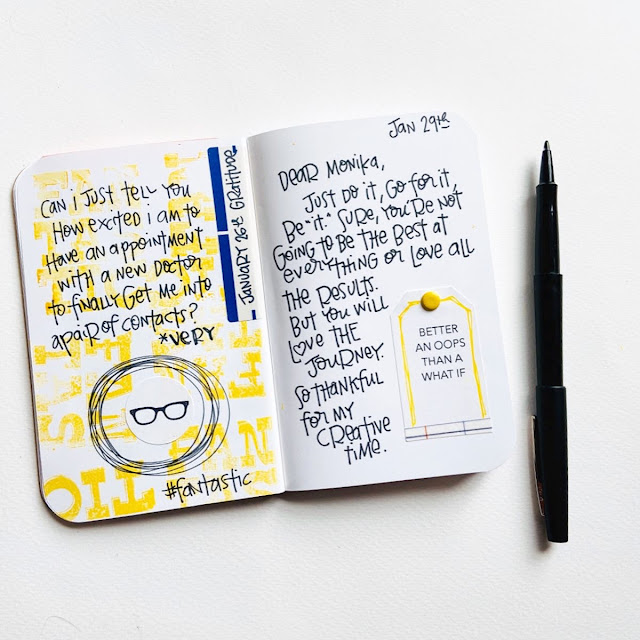 Can i Just tell you
How excited i am to
Have an appointment
with a new doctor
to finally get me into
a pair of contacts?
*very
#fantastic
January 26th Gratitude
Jan 29th
Dear Monika,
Just do it, Go for it,
Be "it" Sure, You're not
Going to be the best at
everything or Love all
the results.
But you will
Love the
Journey.
So thankful
for my
creative
time.
BETTER
AN OOPS
THAN A
WHAT IF
TIC